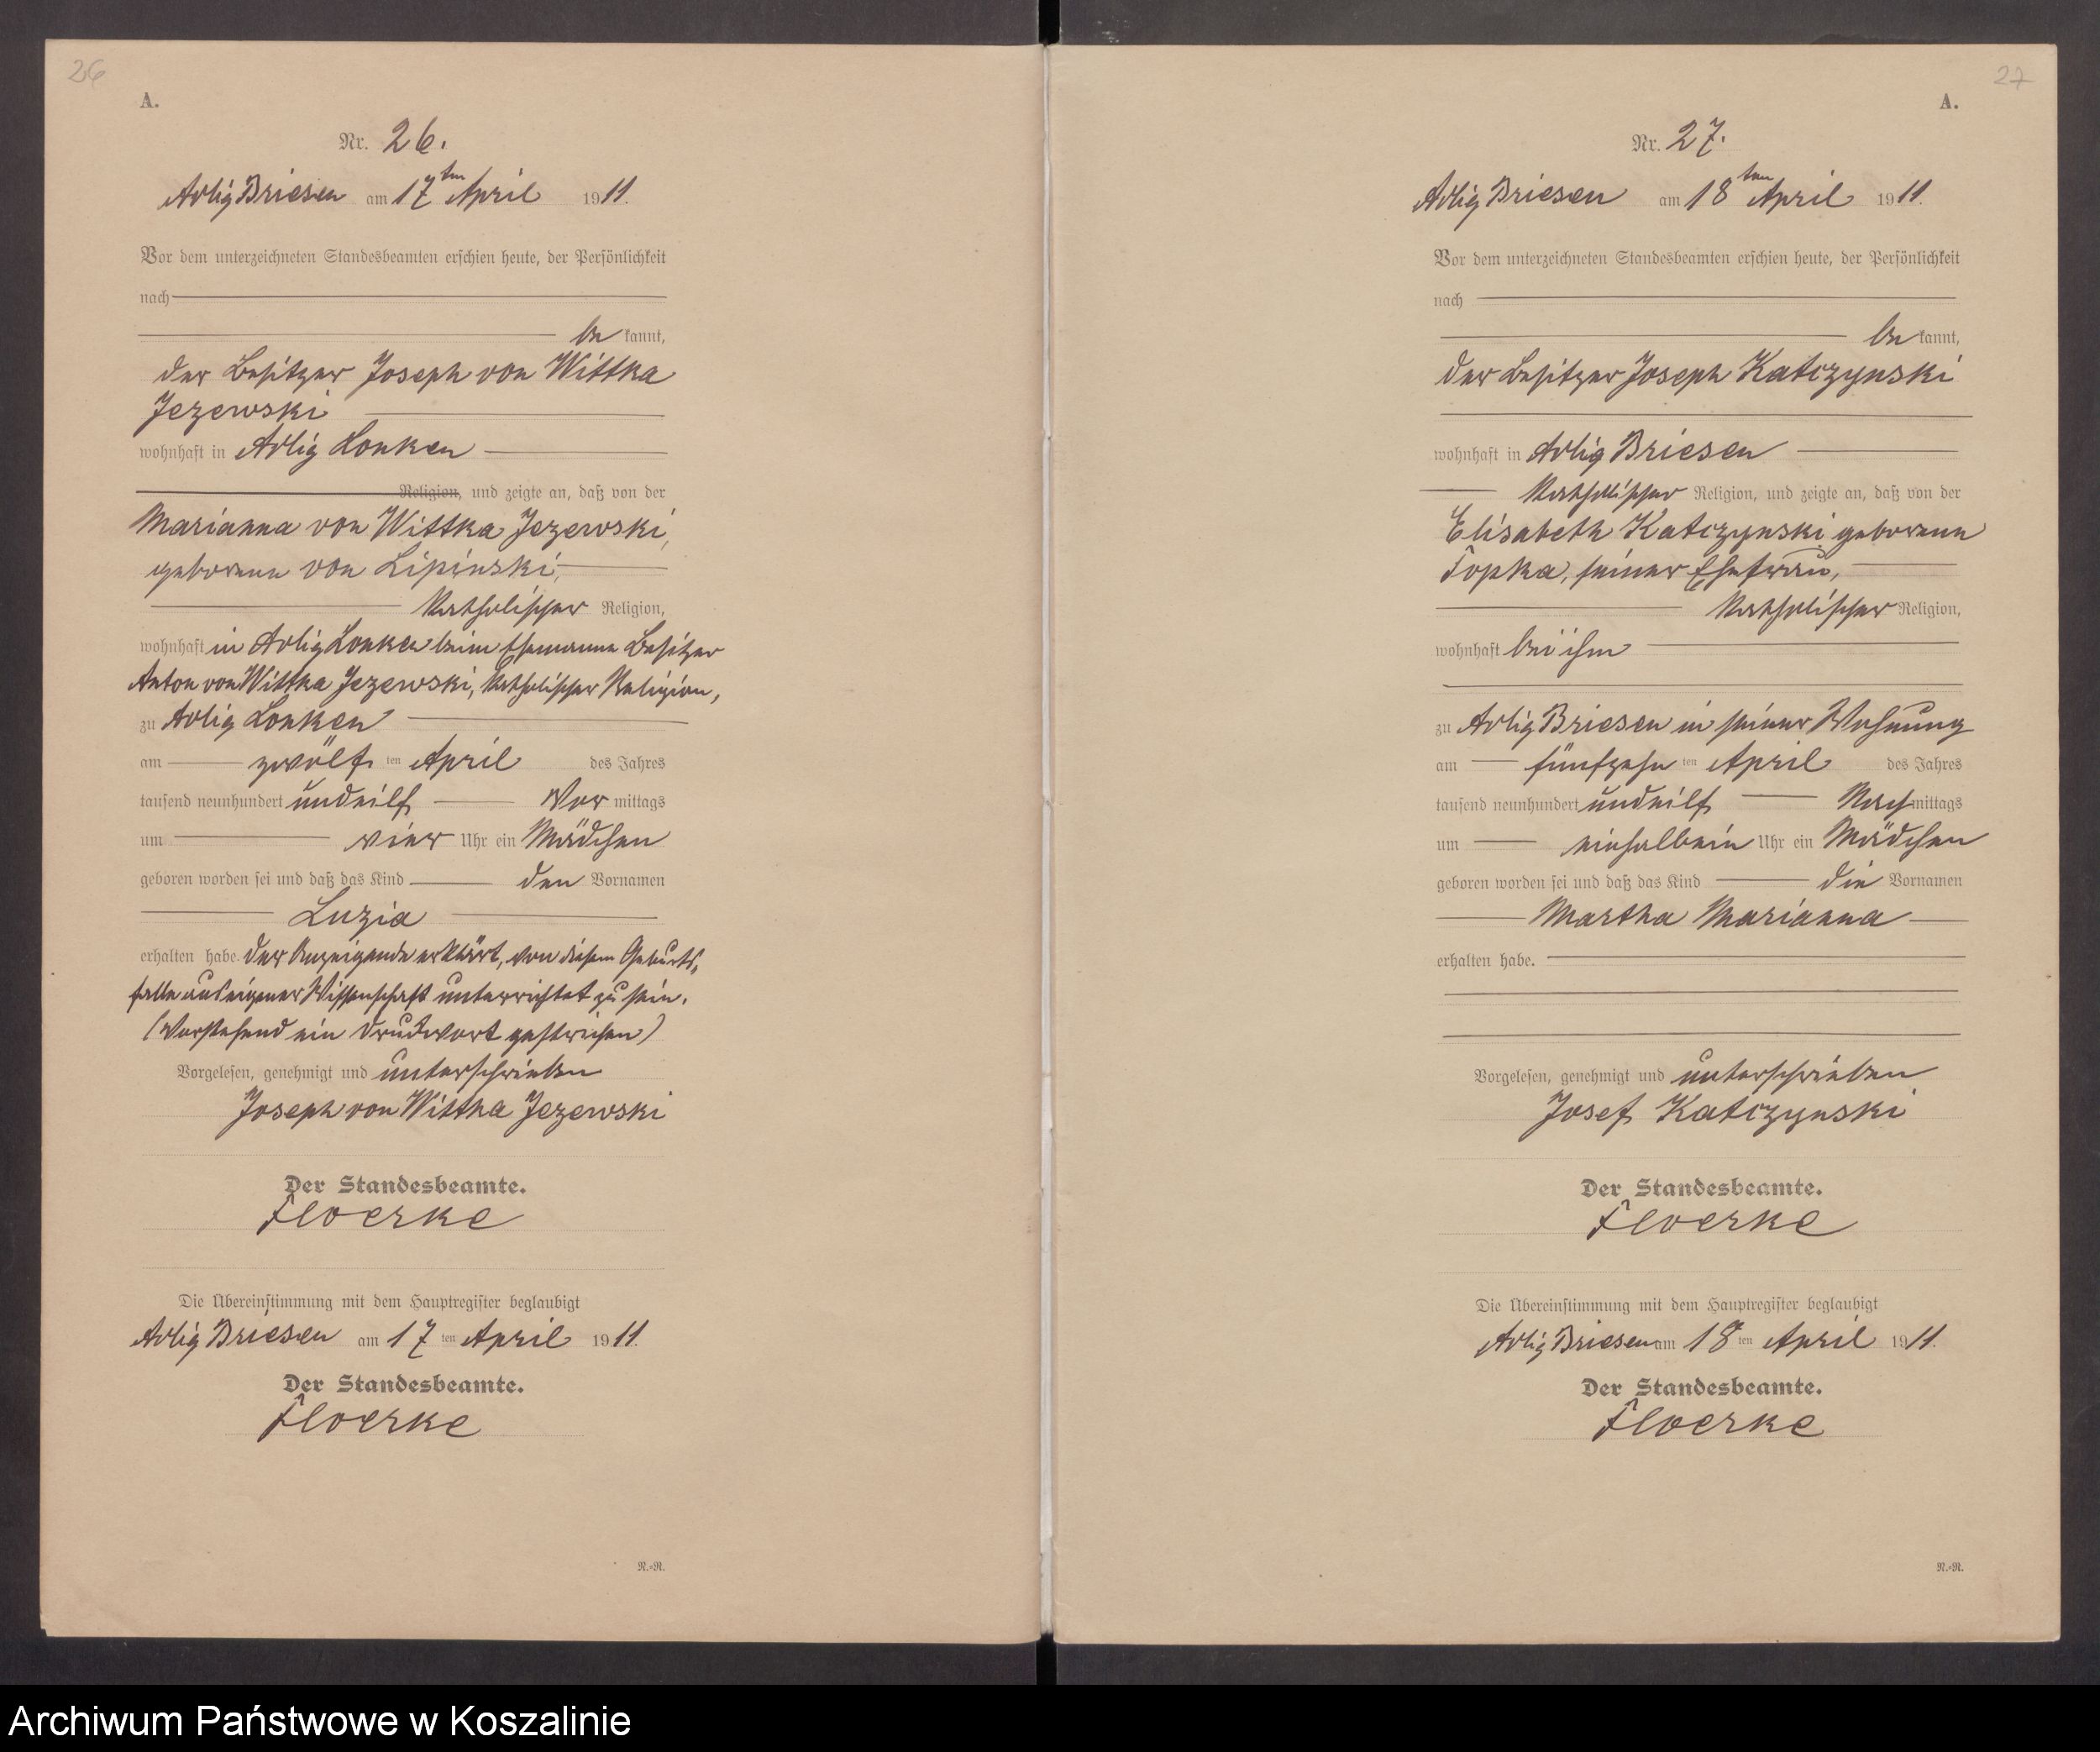 26
A.
Nr. 26.
Adlig Briesen am 17ten April 1911.
Vor dem unterzeichneten Standesbeamten erschien heute, der Persönlichkeit
nach
be kannt,
der Besitzer Joseph von Wittka
Jezewski
wohnhaft in Adlig Lonken
Religion, und zeigte an, daß von der
Marianna von Wittka Jezewski,
geborene von Lipinski,
katholischer Religion,
wohnhaft in Adlig Lonken beim Ehemanne Besitzer
Anton von Wittka Jezewski, katholischer Religion,
zu Adlig Lonken
am zwölf ten April des Jahres
tausend neunhundert und elf Vor mittags
um vier Uhr ein Mädchen
geboren worden sei und daß das Kind den Vornamen
Luzia
erhalten habe. Der Anzeigende erklärt, von diesem Geburts-
falle aus eigener Wissenschaft unterrichtet zu sein.
(Vorstehend ein Druckwort gestrichen)
Vorgelesen, genehmigt und unterschrieben
Joseph von Wittka Jezewski
Der Standesbeamte.
Floerke
Die Übereinstimmung mit dem Hauptregister beglaubigt
Adlig Briesen am 17 ten April 1911.
Der Standesbeamte.
Floerke
R.-R.
27
A.
Nr. 27.
Adlig Briesen am 18ten April 1911.
Vor dem unterzeichneten Standesbeamten erschien heute, der Persönlichkeit
nach
be kannt,
der Besitzer Joseph Katczynski
wohnhaft in Adlig Briesen
katholischer Religion, und zeigte an, daß von der
Elisabeth Katczynski geborene
Topka, seiner Ehefrau,
katholischer Religion,
wohnhaft bei ihm
zu Adlig Briesen in seiner Wohnung
am fünfzehn ten April des Jahres
tausend neunhundert und elf Nach mittags
um einhalbein Uhr ein Mädchen
geboren worden sei und daß das Kind die Vornamen
Martha Marianna
erhalten habe.
Vorgelesen, genehmigt und unterschrieben
Josef Katczynski
Der Standesbeamte.
Floerke
Die Übereinstimmung mit dem Hauptregister beglaubigt
Adlig Briesen am 18 ten April 1911.
Der Standesbeamte.
Floerke
R.-R.
Archiwum Państwowe w Koszalinie